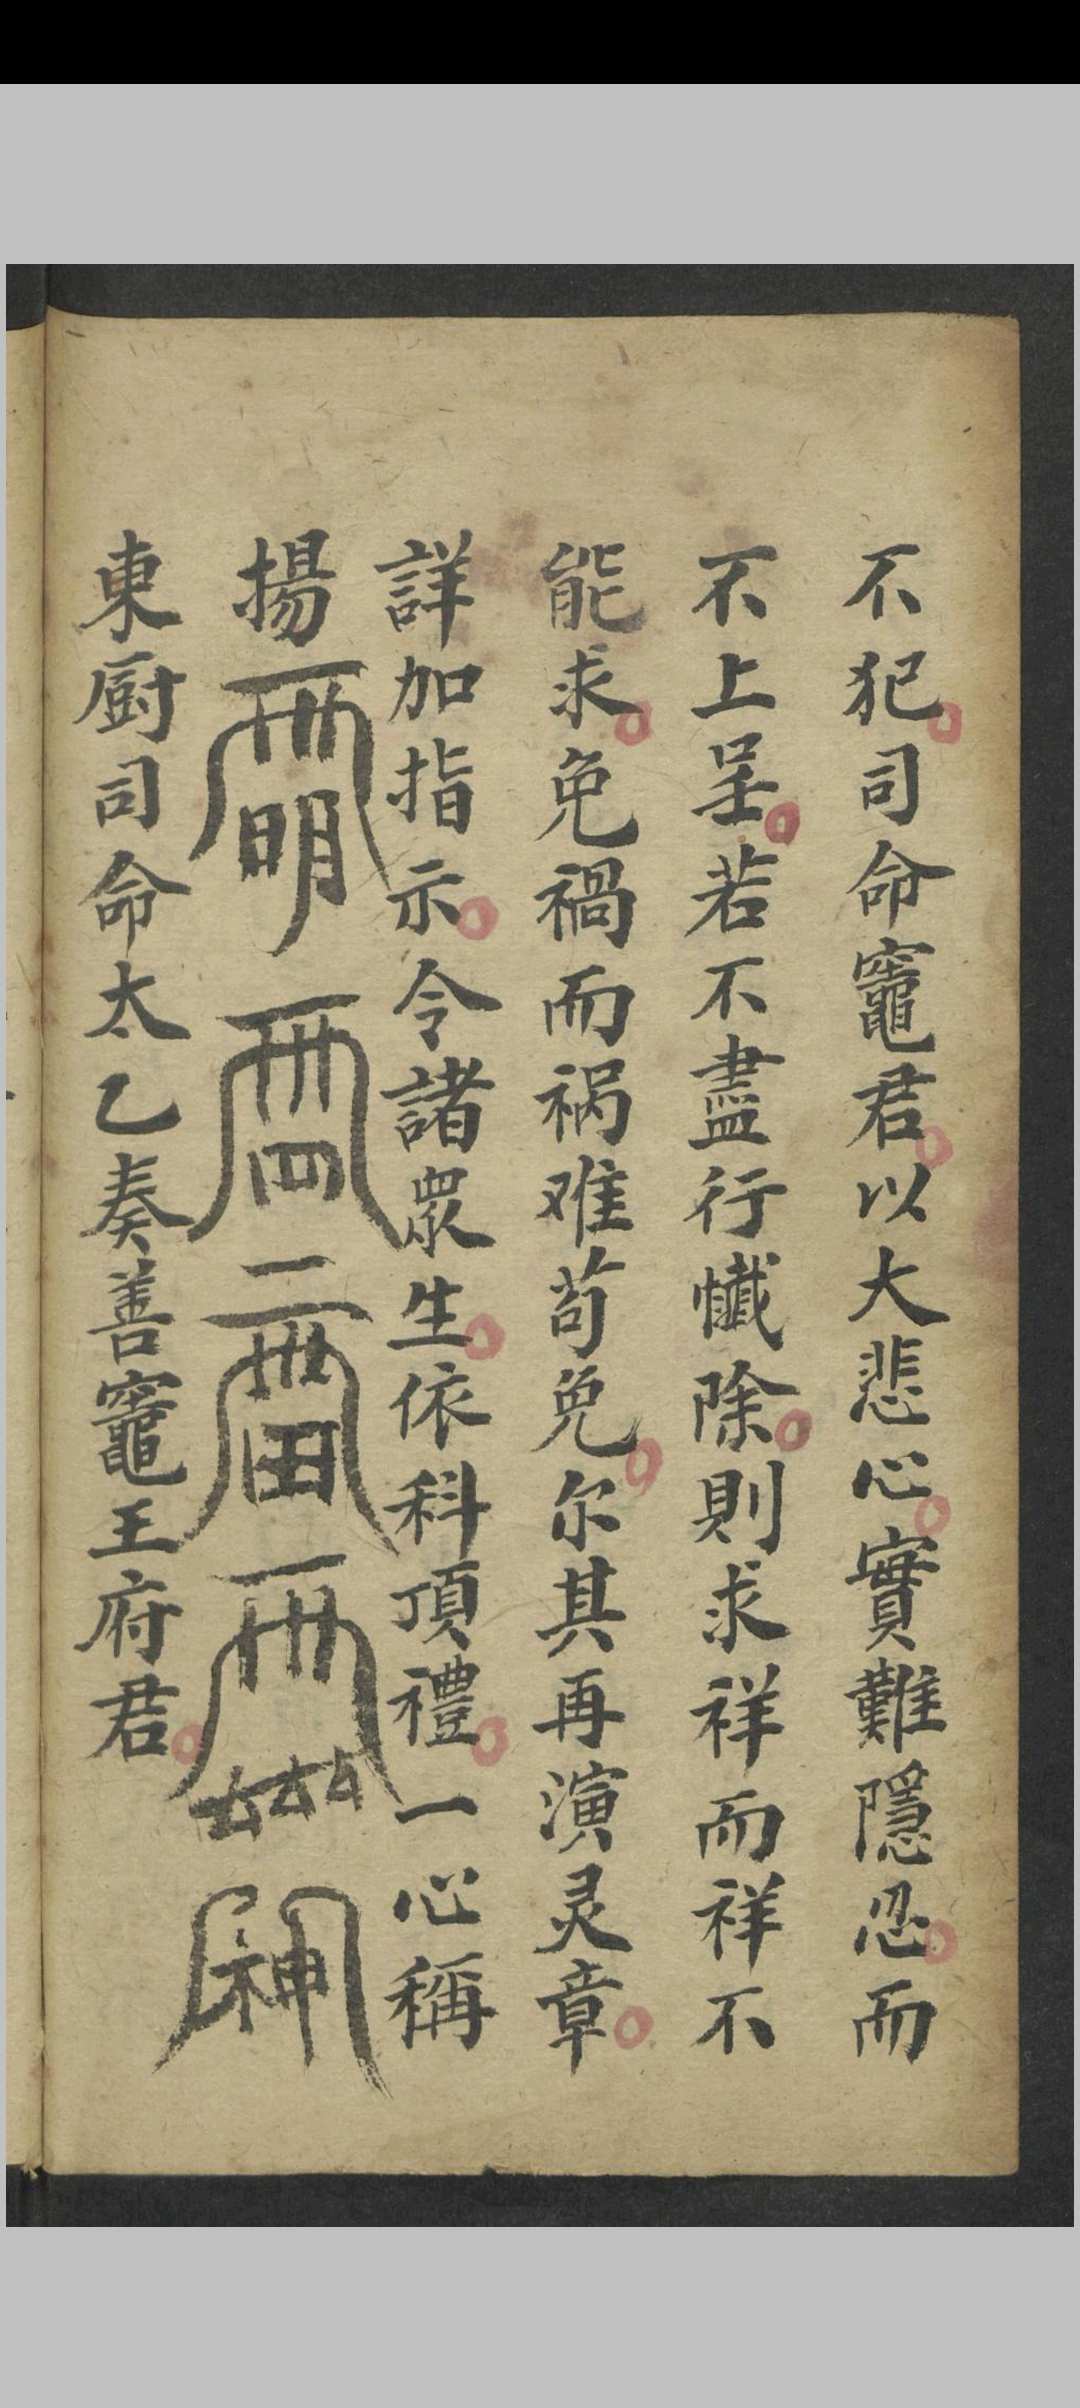 不犯司命竈君以大悲心實難隱忍而
不上呈若不盡行懺除則求祥而祥不
能求免禍而祸难苟免尔其再演灵章
詳加指示令諸眾生依科頂禮一心稱
揚
東厨司命太乙奏善竈王府君